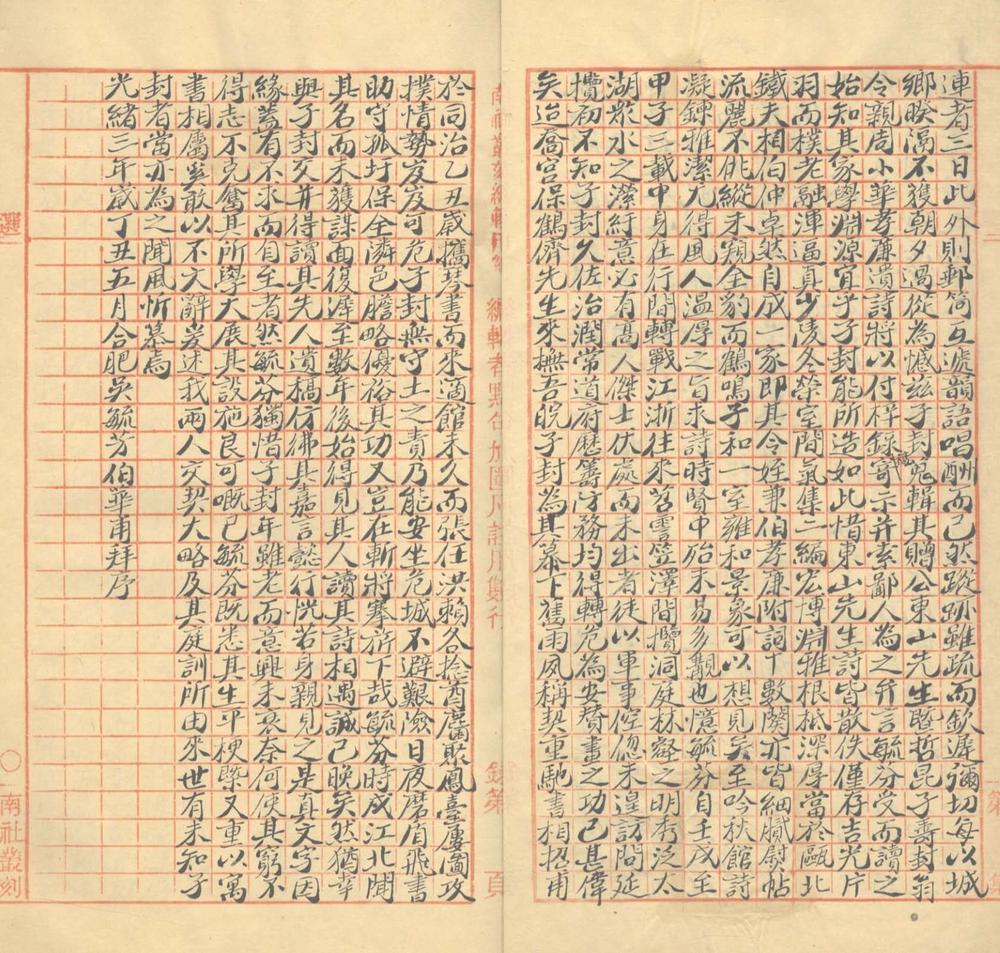 連者三日此外則郵筒互遞韻語唱酬而已然蹤跡雖疏而欽遲彌切每以城
鄉睽濶不獲朝夕過從為憾茲子封宛輯其贈公東山先生暨哲昆子壽封翁
令親周小華孝廉遺詩將以付梓錄寄示并索鄙人為之弁言毓芬受而讀之
始知其家學淵源宜乎子封能所造如此惜東山先生詩皆散佚僅存吉光片
羽而樸老融渾逼真少陵冬榮室間氣集二編宏博淵雅根柢深厚當於甌北
鐵夫相伯仲卓然自成一家即其令姪兼伯孝廉附詞十數闋亦皆細膩熨帖
流麗不佻縱未窺全豹而鶴鳴子和一室雍和景象可以想見矣至吟秋館詩
凝鍊雅潔尤得風人溫厚之旨求詩時賢中殆未易多覯也憶毓芬自壬戌至
甲子三載中身在行間轉戰江浙往來苕霅笠澤間攬洞庭林壑之明秀泛太
湖眾水之瀠紆意必有高人傑士伏處而未出者徒以軍事倥傯未遑訪問延
攬初不知子封久佐治潤常道府歷籌防務均得轉危為安贊畫之功已甚偉
矣迨喬宮保鶴儕先生來撫吾皖子封為其幕下舊雨夙稱契重馳書相招甫
於同治乙丑歲攜琴書而來適館未久而張任洪賴各捻酋麕聚鳳臺屢圖攻
撲情勢岌岌可危子封無守土之責乃能安坐危城不避艱險日夜磨盾飛書
助守孤圩保全潾邑膽略優裕其功又豈在斬將搴旂下哉毓芬時戍江北聞
其名而未獲謀面復遲至數年後始得見其人讀其詩相遇誠已晚矣然猶幸
與子封交并得讀其先人遺稿仿彿其嘉言懿行恍若身親見之是真文字因
緣蓋有不求而自至者然毓芬獨惜子封年雖老而意興未衰奈何使其窮不
得志不克奮其所學大展其設施良可嘅已毓芬既悉其生平梗槩又重以寓
書相屬並敢以不文辭爰述我兩人交契大略及其庭訓所由來世有未知子
封者當亦為之聞風忻慕焉
光緒三年歲丁丑五月合肥吳毓芬伯華甫拜序
南社叢刻編輯用箋
編輯者點句加圈凡誤用
錄第
頁
選
南社叢刻
第